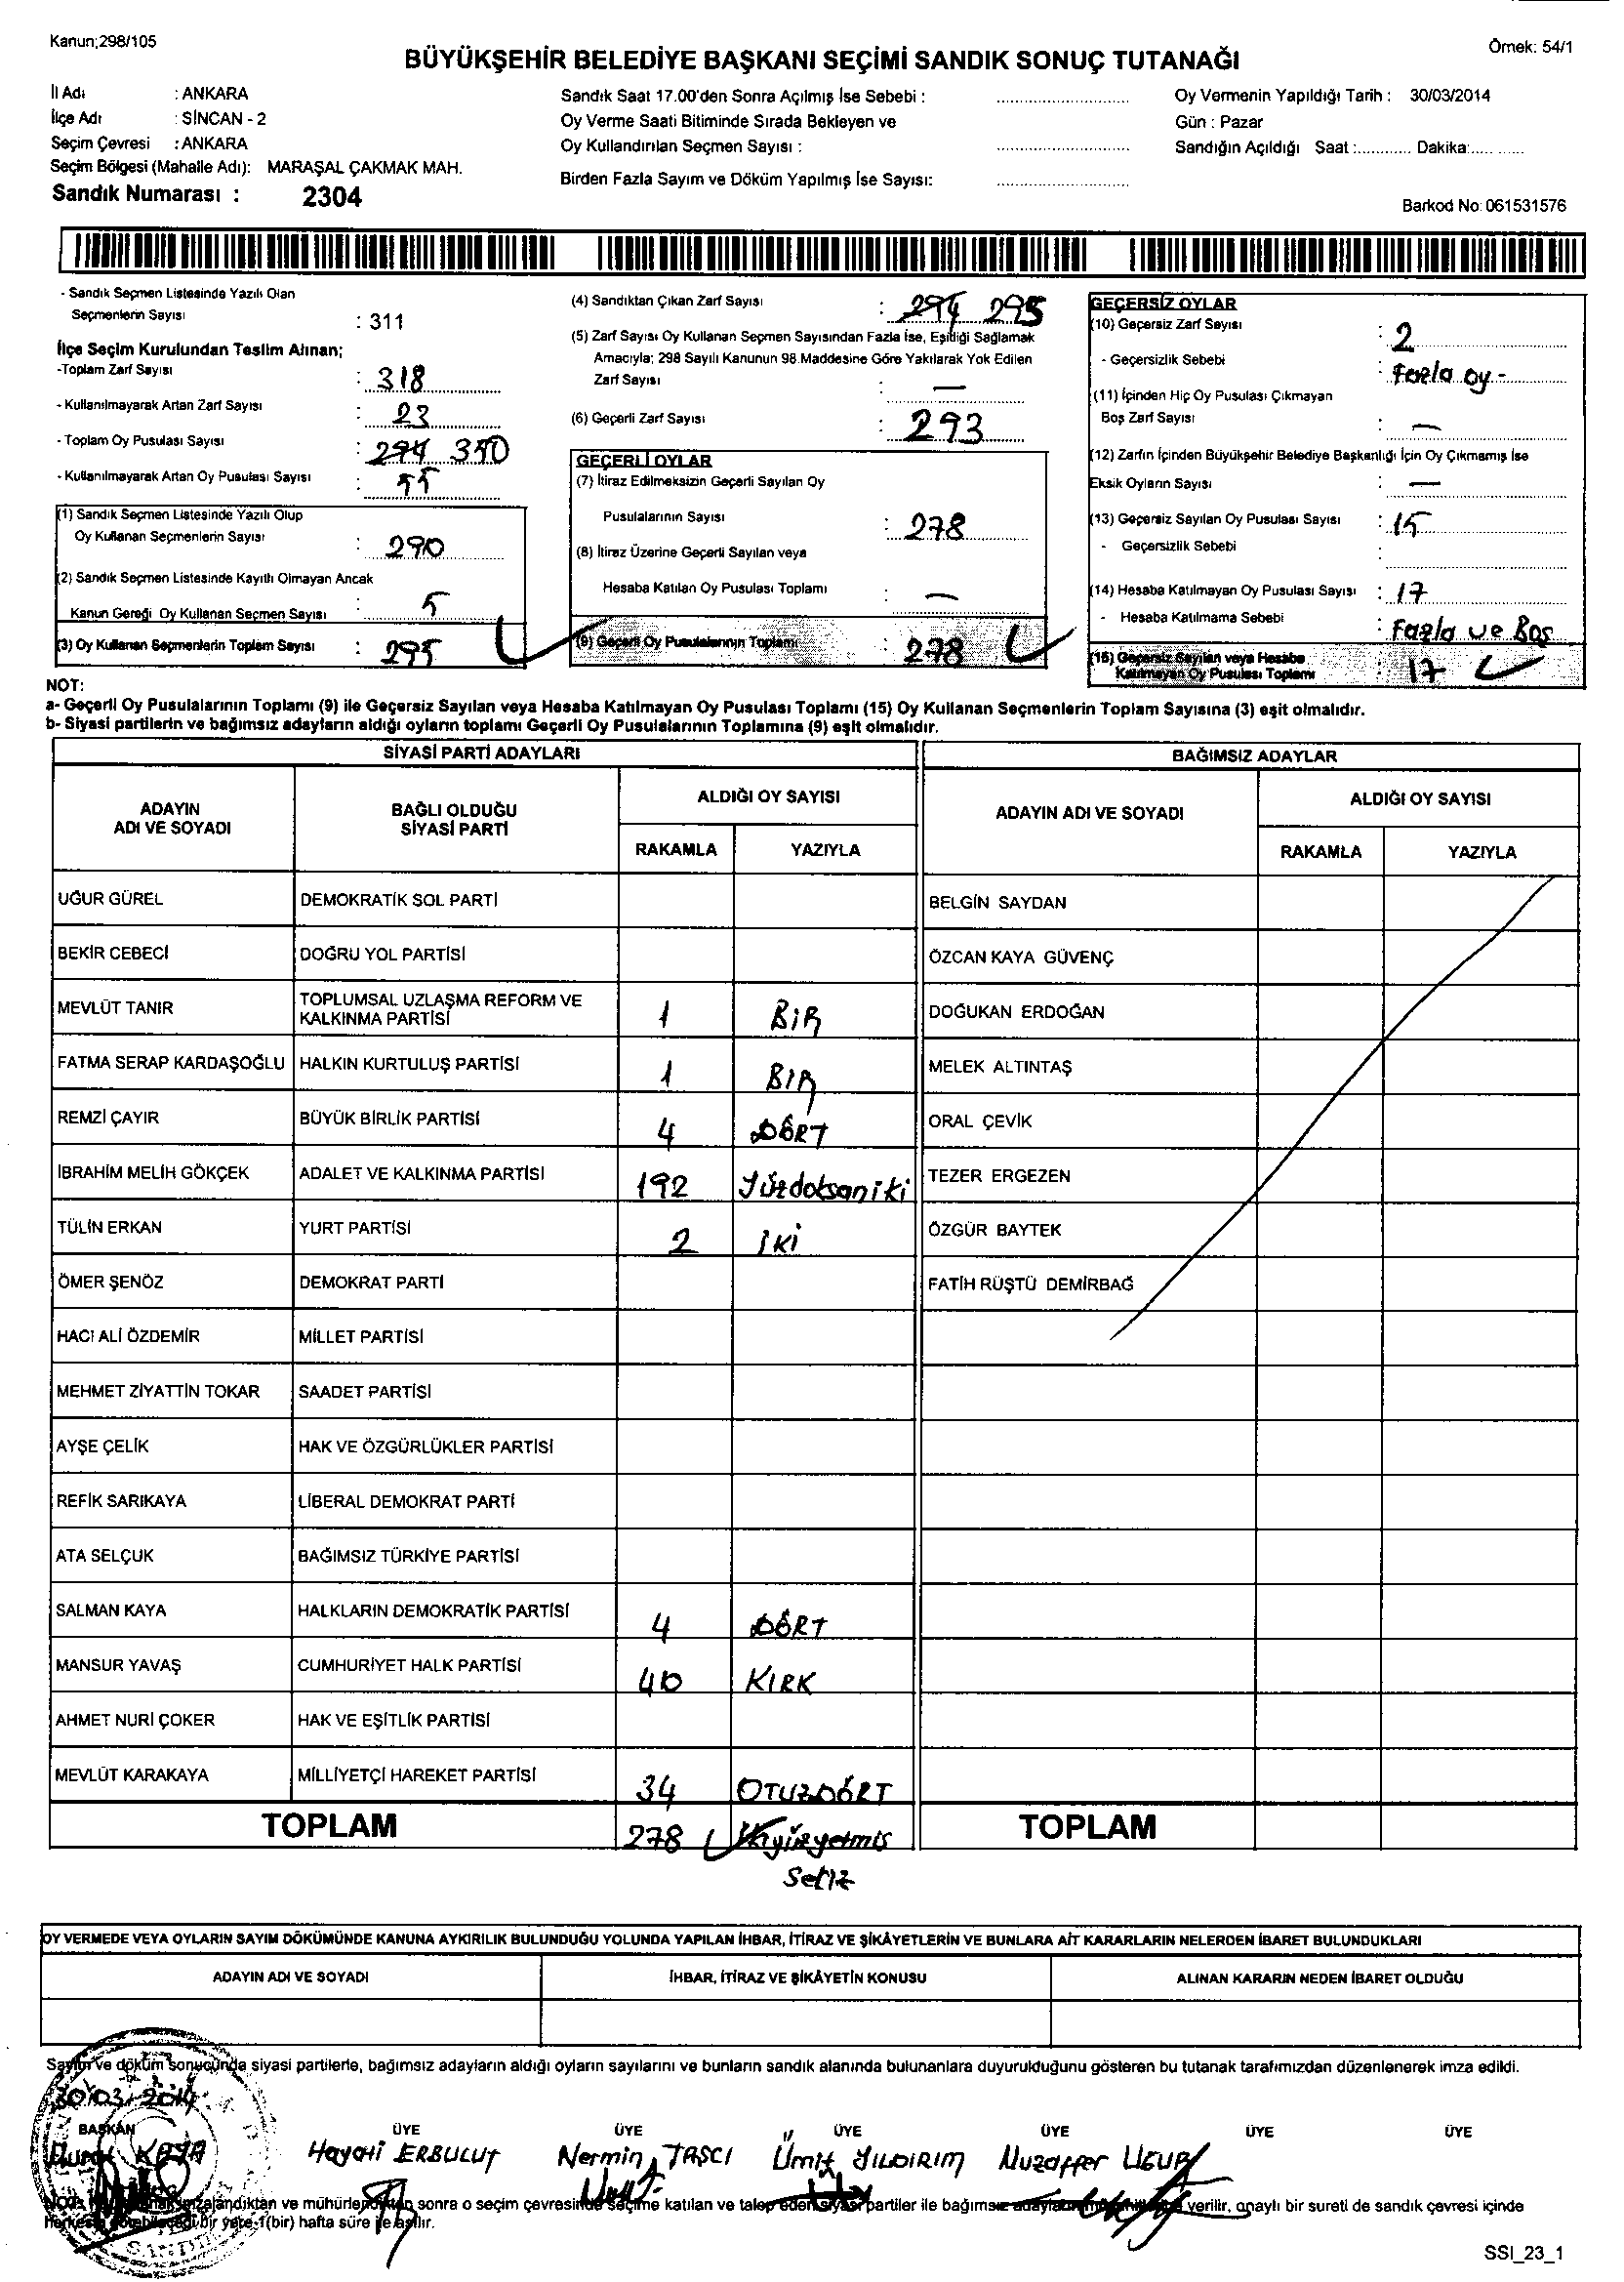 Kanun;298/105
Örnek: 54/1
BÜYÜKŞEHİR BELEDİYE BAŞKANI SEÇİMİ SANDIK SONUÇ TUTANAĞI
İl Adı : ANKARA
İlçe Adı : SİNCAN - 2
Seçim Çevresi : ANKARA
Seçim Bölgesi (Mahalle Adı): MARAŞAL ÇAKMAK MAH.
Sandık Numarası : 2304
Sandık Saat 17.00'den Sonra Açılmış İse Sebebi :
Oy Verme Saati Bitiminde Sırada Bekleyen ve
Oy Kullandırılan Seçmen Sayısı :
Birden Fazla Sayım ve Döküm Yapılmış İse Sayısı:
Oy Vermenin Yapıldığı Tarih : 30/03/2014
Gün : Pazar
Sandığın Açıldığı Saat :............ Dakika:...........
Barkod No: 061531576
- Sandık Seçmen Listesinde Yazılı Olan
Seçmenlerin Sayısı : 311
İlçe Seçim Kurulundan Teslim Alınan;
-Toplam Zarf Sayısı : 318
- Kullanılmayarak Artan Zarf Sayısı : 23
- Toplam Oy Pusulası Sayısı : 294 350
- Kullanılmayarak Artan Oy Pusulası Sayısı : 55
(1) Sandık Seçmen Listesinde Yazılı Olup
Oy Kullanan Seçmenlerin Sayısı : 290
(2) Sandık Seçmen Listesinde Kayıtlı Olmayan Ancak
Kanun Gereği Oy Kullanan Seçmen Sayısı : 5
(3) Oy Kullanan Seçmenlerin Toplam Sayısı : 295
(4) Sandıktan Çıkan Zarf Sayısı : 294 295
(5) Zarf Sayısı Oy Kullanan Seçmen Sayısından Fazla İse, Eşitliği Sağlamak
Amacıyla; 298 Sayılı Kanunun 98.Maddesine Göre Yakılarak Yok Edilen
Zarf Sayısı : —
(6) Geçerli Zarf Sayısı : 293
GEÇERLİ OYLAR
(7) İtiraz Edilmeksizin Geçerli Sayılan Oy
Pusulalarının Sayısı : 278
(8) İtiraz Üzerine Geçerli Sayılan veya
Hesaba Katılan Oy Pusulası Toplamı : —
(9) Geçerli Oy Pusulalarının Toplamı : 278
GEÇERSİZ OYLAR
(10) Geçersiz Zarf Sayısı : 2
- Geçersizlik Sebebi : Fazla oy -
(11) İçinden Hiç Oy Pusulası Çıkmayan
Boş Zarf Sayısı : —
(12) Zarfın İçinden Büyükşehir Belediye Başkanlığı İçin Oy Çıkmamış İse
Eksik Oyların Sayısı : —
(13) Geçersiz Sayılan Oy Pusulası Sayısı : 15
- Geçersizlik Sebebi :
(14) Hesaba Katılmayan Oy Pusulası Sayısı : 17
- Hesaba Katılmama Sebebi : Fazla ve Boş
(15) Geçersiz Sayılan veya Hesaba
Katılmayan Oy Pusulası Toplamı : 17
NOT:
a- Geçerli Oy Pusulalarının Toplamı (9) ile Geçersiz Sayılan veya Hesaba Katılmayan Oy Pusulası Toplamı (15) Oy Kullanan Seçmenlerin Toplam Sayısına (3) eşit olmalıdır.
b- Siyasi partilerin ve bağımsız adayların aldığı oyların toplamı Geçerli Oy Pusulalarının Toplamına (9) eşit olmalıdır.
SİYASİ PARTİ ADAYLARI
ADAYIN ADI VE SOYADI
BAĞLI OLDUĞU SİYASİ PARTİ
ALDIĞI OY SAYISI
RAKAMLA YAZIYLA
UĞUR GÜREL DEMOKRATİK SOL PARTİ
BEKİR CEBECİ DOĞRU YOL PARTİSİ
MEVLÜT TANIR TOPLUMSAL UZLAŞMA REFORM VE KALKINMA PARTİSİ 1 BİR
FATMA SERAP KARDAŞOĞLU HALKIN KURTULUŞ PARTİSİ 1 BIR
REMZİ ÇAYIR BÜYÜK BİRLİK PARTİSİ 4 DÖRT
İBRAHİM MELİH GÖKÇEK ADALET VE KALKINMA PARTİSİ 192 Yüzdoksaniki
TÜLİN ERKAN YURT PARTİSİ 2 İKİ
ÖMER ŞENÖZ DEMOKRAT PARTİ
HACI ALİ ÖZDEMİR MİLLET PARTİSİ
MEHMET ZİYATTİN TOKAR SAADET PARTİSİ
AYŞE ÇELİK HAK VE ÖZGÜRLÜKLER PARTİSİ
REFİK SARIKAYA LİBERAL DEMOKRAT PARTİ
ATA SELÇUK BAĞIMSIZ TÜRKİYE PARTİSİ
SALMAN KAYA HALKLARIN DEMOKRATİK PARTİSİ 4 DÖRT
MANSUR YAVAŞ CUMHURİYET HALK PARTİSİ 40 KIRK
AHMET NURİ ÇOKER HAK VE EŞİTLİK PARTİSİ
MEVLÜT KARAKAYA MİLLİYETÇİ HAREKET PARTİSİ 34 OTUZDÖRT
TOPLAM 278 İkiyüzyetmiş
Sekiz
BAĞIMSIZ ADAYLAR
ADAYIN ADI VE SOYADI
ALDIĞI OY SAYISI
RAKAMLA YAZIYLA
BELGİN SAYDAN
ÖZCAN KAYA GÜVENÇ
DOĞUKAN ERDOĞAN
MELEK ALTINTAŞ
ORAL ÇEVİK
TEZER ERGEZEN
ÖZGÜR BAYTEK
FATİH RÜŞTÜ DEMİRBAĞ
TOPLAM
OY VERMEDE VEYA OYLARIN SAYIM DÖKÜMÜNDE KANUNA AYKIRILIK BULUNDUĞU YOLUNDA YAPILAN İHBAR, İTİRAZ VE ŞİKÂYETLERİN VE BUNLARA AİT KARARLARIN NELERDEN İBARET BULUNDUKLARI
ADAYIN ADI VE SOYADI
İHBAR, İTİRAZ VE ŞİKÂYETİN KONUSU
ALINAN KARARIN NEDEN İBARET OLDUĞU
Sayım ve döküm sonucunda siyasi partilerle, bağımsız adayların aldığı oyların sayılarını ve bunların sandık alanında bulunanlara duyurulduğunu gösteren bu tutanak tarafımızdan düzenlenerek imza edildi.
30/03/2014
BAŞKAN ÜYE ÜYE ÜYE ÜYE ÜYE ÜYE
KAYA Hayati ERBULUT Nermin TAŞCI Ümit YILDIRIM Muzaffer UĞUR
sonra o seçim çevresinde seçime katılan ve talep eden siyasi partiler ile bağımsız verilir, onaylı bir sureti de sandık çevresi içinde
bir yere 1(bir) hafta süre ile asılır.
SSI_23_1